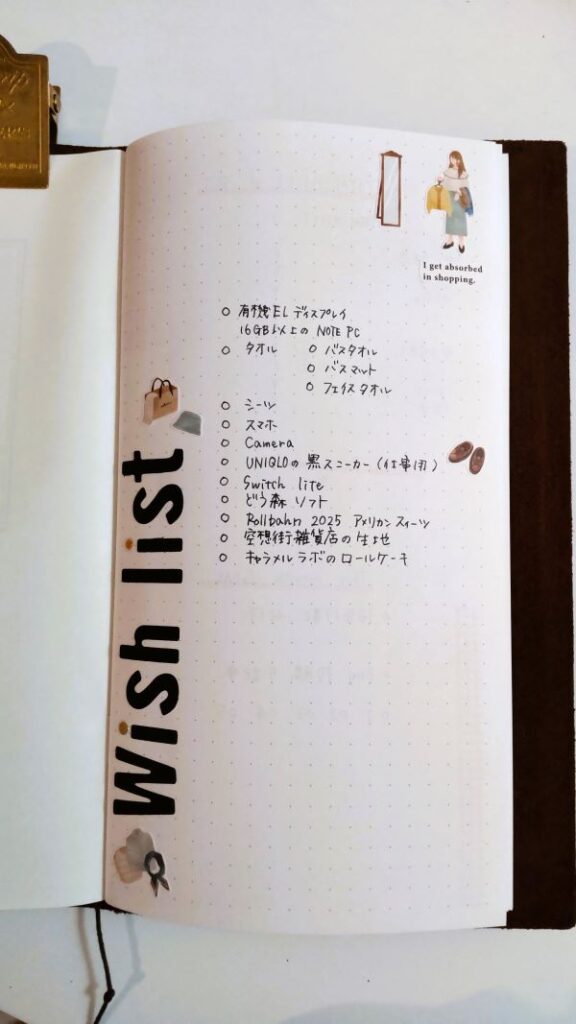 I get absorbed
in shopping.
Wish list
○ 有機ELディスプレイ
16GB以上の NOTE PC
○ タオル ○ バスタオル
○ バスマット
○ フェイスタオル
○ シーツ
○ スマホ
○ Camera
○ UNIQLOの黒スニーカー(仕事用)
○ Switch lite
○ どう森 ソフト
○ Rollbahn 2025 アメリカンスイーツ
○ 空想街雑貨店の生地
○ キャラメルラボのロールケーキ